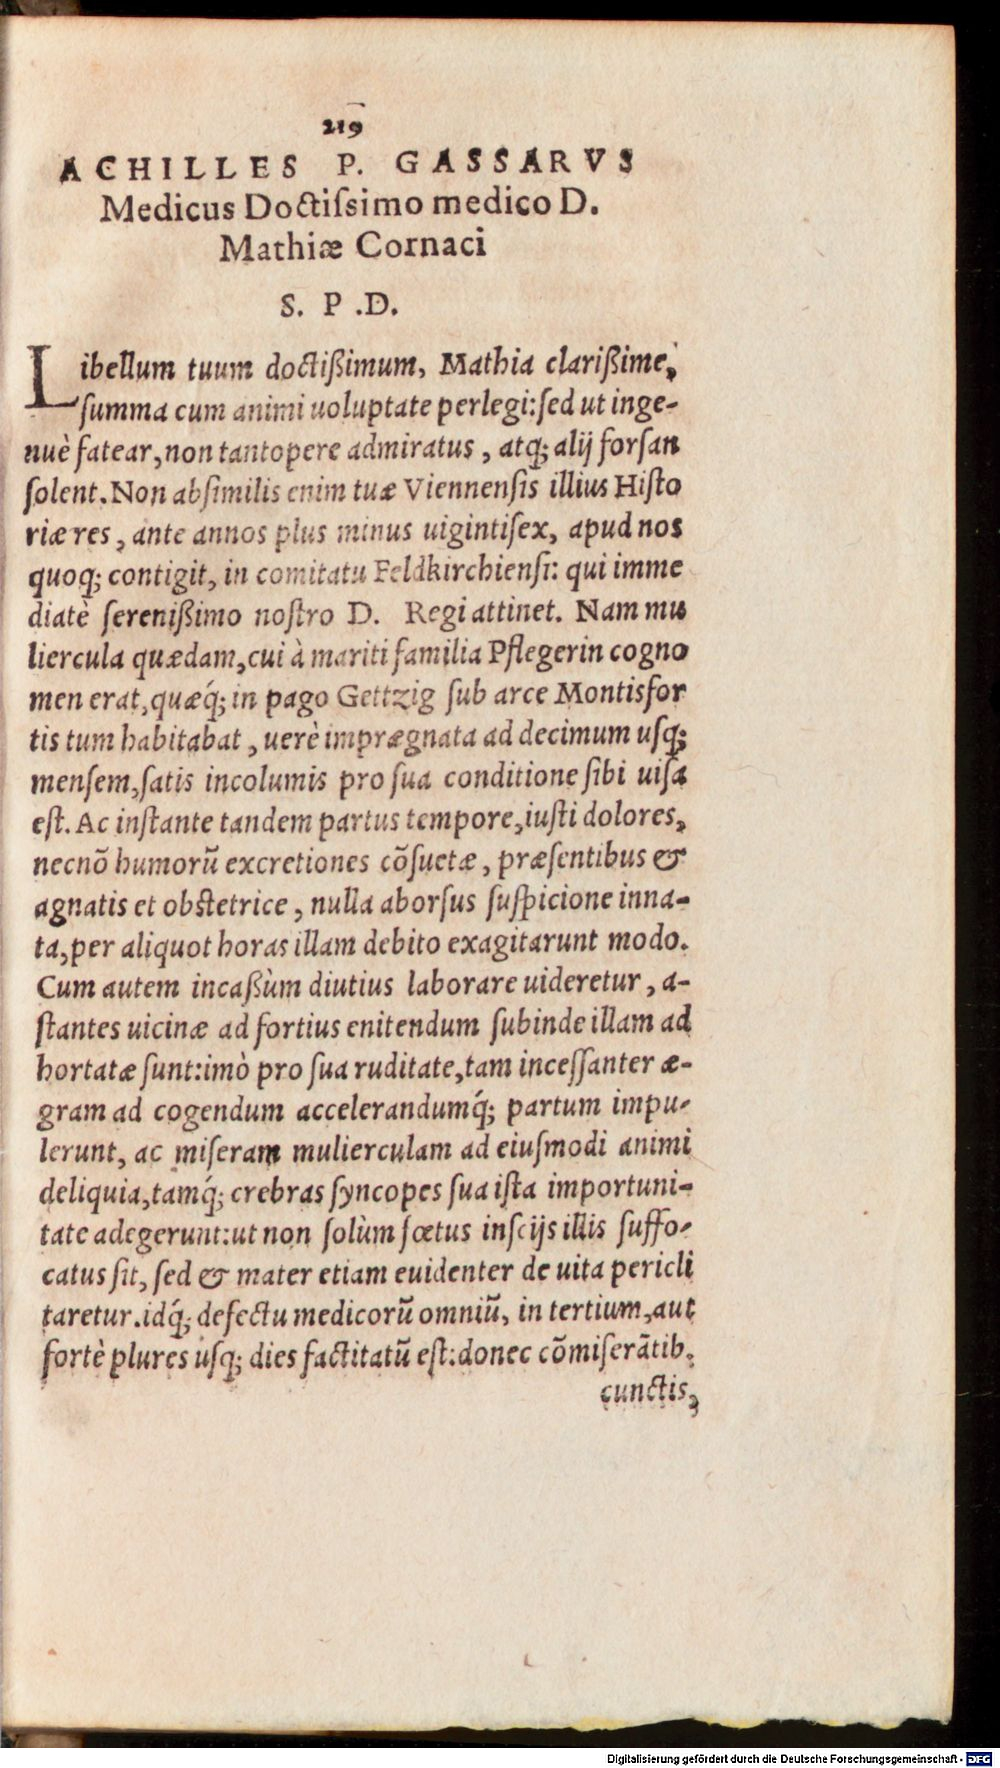 219
ACHILLES P. GASSARVS
Medicus Doctiſsimo medico D.
Mathiæ Cornaci
S. P .D.
Libellum tuum doctißimum, Mathia clarißime,
ſumma cum animi uoluptate perlegi:ſed ut inge-
nuè fatear, non tantopere admiratus , atq; alij forſan
ſolent. Non abſimilis enim tuæ Viennenſis illius Hiſto
riæ res , ante annos plus minus uigintiſex, apud nos
quoq; contigit, in comitatu Feldkirchienſi: qui imme
diatè ſerenißimo noſtro D. Regi attinet. Nam mu
liercula quædam, cui à mariti familia Pflegerin cogno
men erat, quæq́; in pago Gettzig ſub arce Montisfor
tis tum habitabat , uerè imprægnata ad decimum uſq;
menſem, ſatis incolumis pro ſua conditione ſibi uiſa
eſt. Ac inſtante tandem partus tempore, iuſti dolores,
necnõ humorũ excretiones cõſuetæ , præſentibus &
agnatis et obſtetrice , nulla aborſus ſuſpicione inna-
ta, per aliquot horas illam debito exagitarunt modo.
Cum autem incaßùm diutius laborare uideretur , a-
ſtantes uicinæ ad fortius enitendum ſubinde illam ad
hortatæ ſunt:imò pro ſua ruditate, tam inceſſanter æ-
gram ad cogendum accelerandumq́; partum impu-
lerunt, ac miſeram mulierculam ad eiuſmodi animi
deliquia, tamq́; crebras ſyncopes ſua iſta importuni-
tate adegerunt:ut non ſolùm fœtus inſcijs illis ſuffo-
catus ſit, ſed & mater etiam euidenter de uita pericli
taretur. idq́; defectu medicorũ omniũ, in tertium, aut
fortè plures uſq; dies factitatũ eſt:donec cõmiſerãtib.
cunctis,
Digitalisierung gefördert durch die Deutsche Forschungsgemeinschaft - DFG